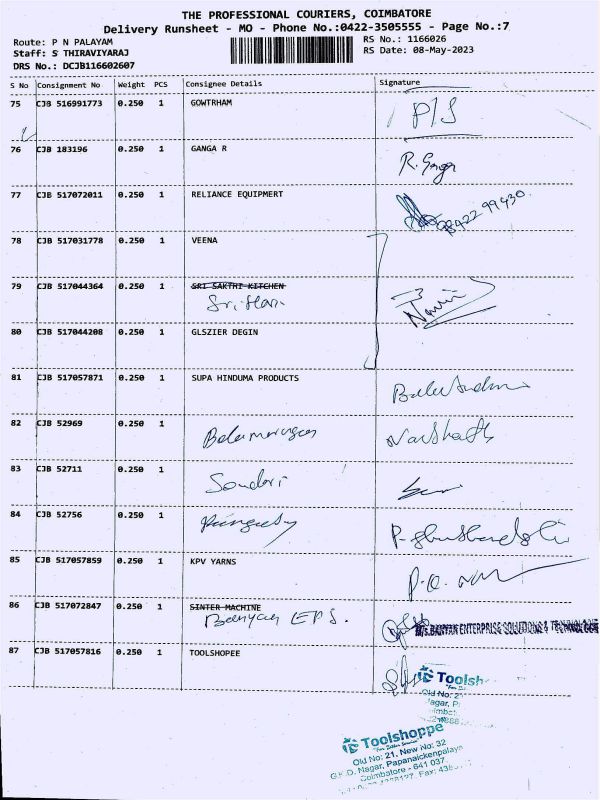 THE PROFESSIONAL COURIERS, COIMBATORE
Delivery Runsheet - MO - Phone No.:0422-3505555 - Page No.:7
Route: P N PALAYAM
RS No.: 1166026
Staff: S THIRAVIYARAJ
RS Date: 08-May-2023
DRS No.: DCJB116602607
S No Consignment No Weight PCS Consignee Details Signature
75 CJB 516991773 0.250 1 GOWTRHAM
76 CJB 183196 0.250 1 GANGA R R. Ganga
77 CJB 517072011 0.250 1 RELIANCE EQUIPMENT
78 CJB 517031778 0.250 1 VEENA
79 CJB 517044364 0.250 1 SRI SAKTHI KITCHEN
Sri Hari
80 CJB 517044208 0.250 1 GLSZIER DEGIN
81 CJB 517057871 0.250 1 SUPA HINDUMA PRODUCTS
82 CJB 52969 0.250 1 Balamurugan
83 CJB 52711 0.250 1 Soudari
84 CJB 52756 0.250 1
85 CJB 517057859 0.250 1 KPV YARNS
86 CJB 517072847 0.250 1 SINTER MACHINE
Banyan EPS. M/S.BANYAN ENTERPRISE SOLUTIONS & TECHNOLOGIES
87 CJB 517057816 0.250 1 TOOLSHOPEE
Toolsh
Old No: 2
Nagar, P
Toolshoppe
Old No: 21, New No: 32
G.K.D. Nagar, Papanaickenpalaya
Coimbatore - 641 037.